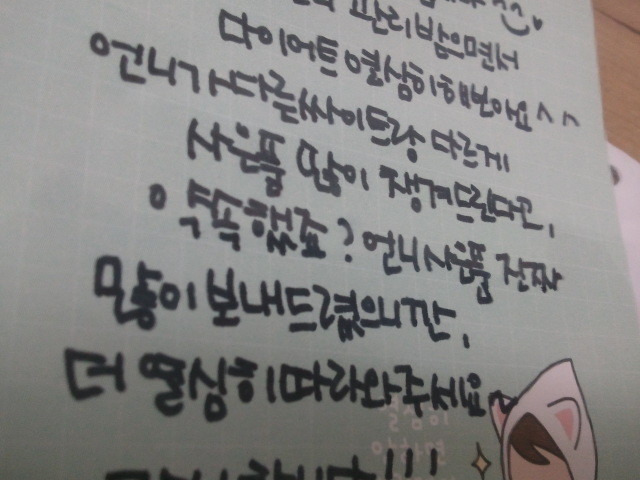 관리받으면서
다이어트 열심히 해보아요^^
언니가 다른싸이트랑 다르게
사은품 많이 챙겨드린다고,
약속했죠? 언니사은품 진짜
많이 보내드렸으니깐,
더 열심히 따라와주세요~